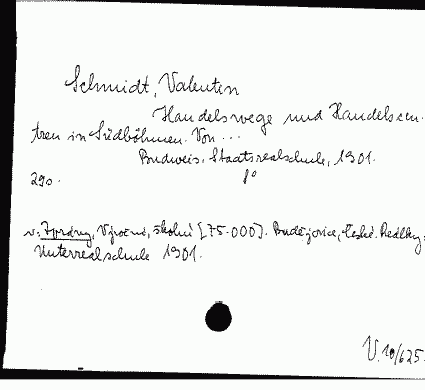 Schmidt, Valentin
Handelswege und Handelscen-
tren in Südböhmen. Von ...
Budweis, Staatsrealschule, 1901.
29o. 8°
v: Zprávy, Výroční, školní [75.000]. Budějovice, České. Ředitelky:
Unterrealschule 1901.
V.10/625.